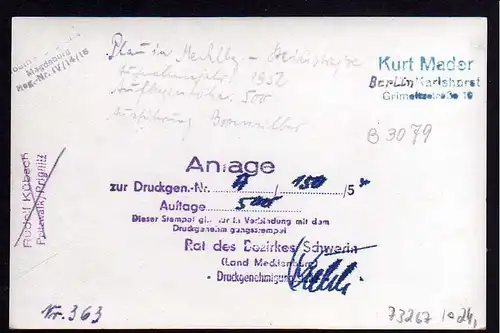 Magdeburg
Reg.-Nr. IV/14/16
Plau in Mecklbg. - Steinstraße
Aufnahmejahr: 1952
Auflagenhöhe: 500
Ausführung Bromsilber
Kurt Mader
Berlin Karlshorst
B 3079
Rudolf Kübach
Anlage
zur Druckgen.-Nr. A / 150 /5
Auflage 500
Dieser Stempel gilt nur in Verbindung mit dem
Druckgenehmigungsstempel
Rat des Bezirkes Schwerin
(Land Mecklenburg)
Druckgenehmigung
Nr. 363
73267